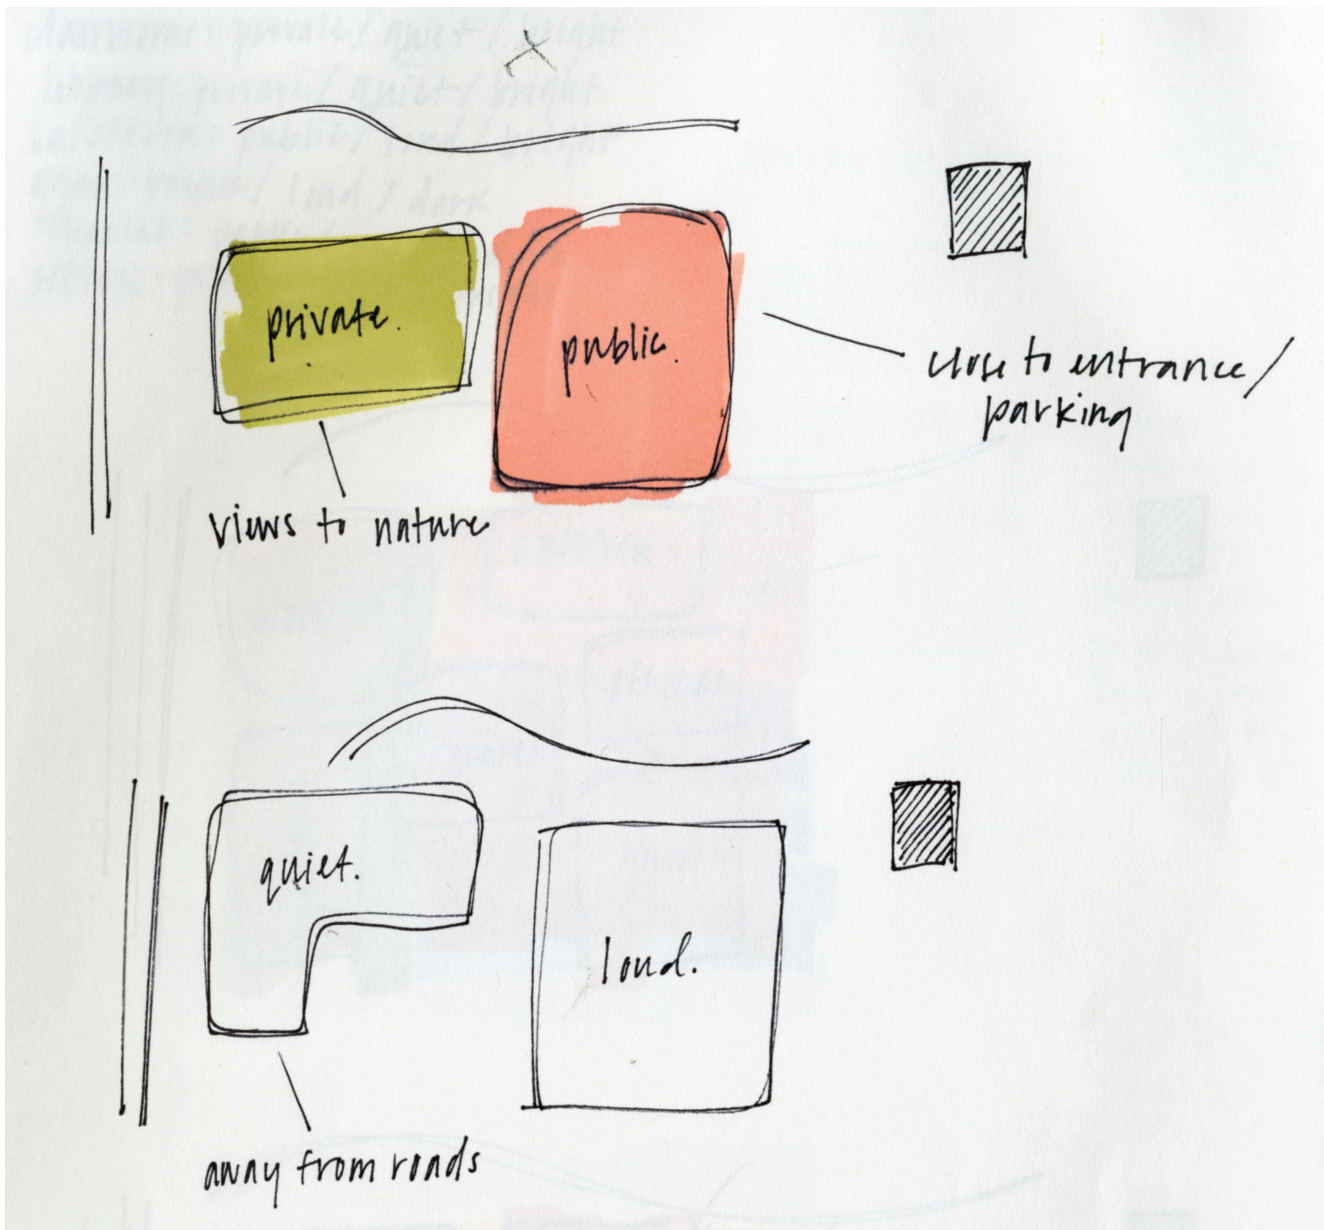 private.
public.
close to entrance/
parking
views to nature
quiet.
loud.
away from roads